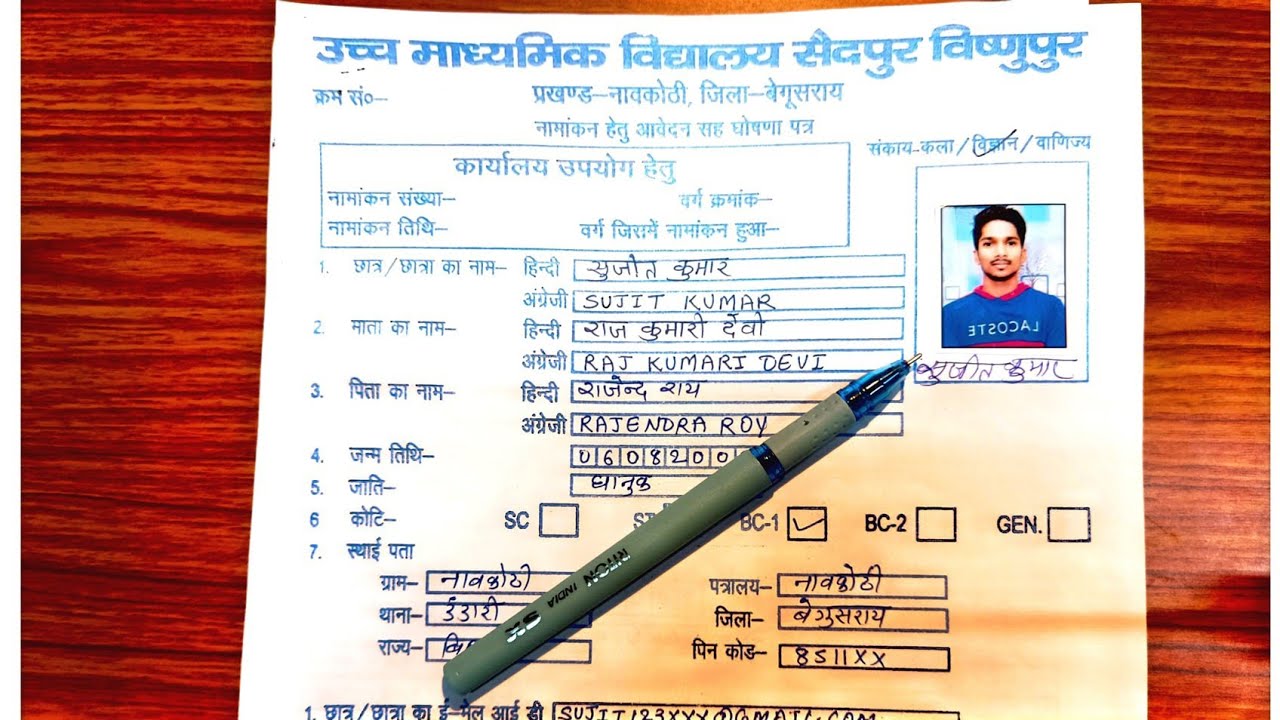 उच्च माध्यमिक विद्यालय सैदपुर विष्णुपुर
क्रम सं०– प्रखण्ड–नावकोठी, जिला–बेगूसराय
नामांकन हेतु आवेदन सह घोषणा पत्र
संकाय-कला / विज्ञान / वाणिज्य
कार्यालय उपयोग हेतु
नामांकन संख्या– वर्ग क्रमांक–
नामांकन तिथि– वर्ग जिसमें नामांकन हुआ–
1. छात्र/छात्रा का नाम– हिन्दी सुजीत कुमार
अंग्रेजी SUJIT KUMAR
2. माता का नाम– हिन्दी राज कुमारी देवी
अंग्रेजी RAJ KUMARI DEVI
LACOSTE
सुजीत कुमार
3. पिता का नाम– हिन्दी राजेन्द राय
अंग्रेजी RAJENDRA ROY
4. जन्म तिथि– 0 6 0 8 2 0 0
5. जाति– धानुक
6 कोटि– SC ST BC-1 BC-2 GEN.
7. स्थाई पता
ग्राम– नावकोठी पत्रालय– नावकोठी
थाना– जिला– बेगुसराय
राज्य– पिन कोड– 8511XX
RITON INDIA
1. छात्र/छात्रा का ई-मेल आई डी SUJIT123XXX@GMAIL.COM